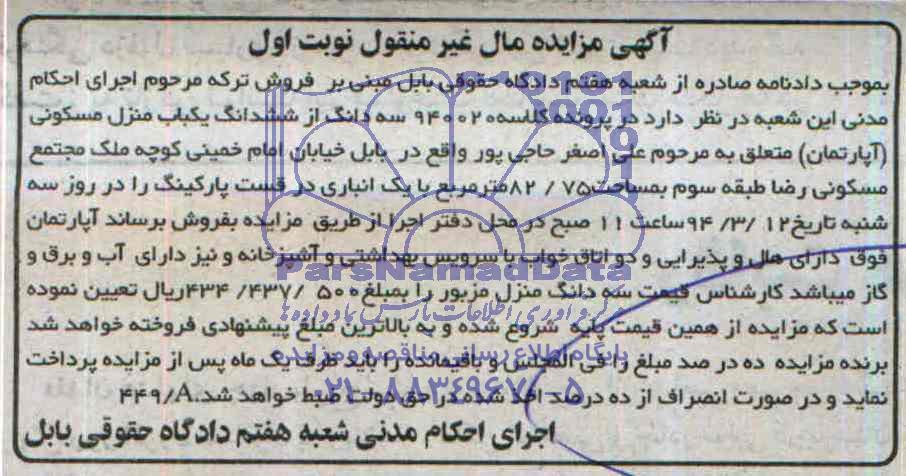 آگهی مزایده مال غیر منقول نوبت اول
بموجب دادنامه صادره از شعبه هفتم دادگاه حقوقی بابل مبنی بر فروش ترکه مرحوم اجرای احکام
مدنی این شعبه در نظر دارد در پرونده کلاسه ۹۴۰۰۲۰ سه دانگ از ششدانگ یکباب منزل مسکونی
(آپارتمان) متعلق به مرحوم علی اصغر حاجی پور واقع در بابل خیابان امام خمینی کوچه ملک مجتمع
مسکونی رضا طبقه سوم بمساحت ۷۵ / ۸۲مترمربع با یک انباری در قست پارکینگ را در روز سه
شنبه تاریخ ۱۲ /۳/ ۹۴ساعت ۱۱ صبح در محل دفتر اجرا از طریق مزایده بفروش برساند آپارتمان
فوق دارای هال و پذیرایی و دو اتاق خواب با سرویس بهداشتی و آشپزخانه و نیز دارای آب و برق و
گاز میباشد کارشناس قیمت سه دانگ منزل مزبور را بمبلغ ۵۰۰ /۴۳۷/ ۴۳۴ریال تعیین نموده
است که مزایده از همین قیمت پایه شروع شده و به بالاترین مبلغ پیشنهادی فروخته خواهد شد
برنده مزایده ده در صد مبلغ را فی المجلس و باقیمانده را باید ظرف یک ماه پس از مزایده پرداخت
نماید و در صورت انصراف از ده درصد اخذ شده در حق دولت ضبط خواهد شد.۴۴۹/A
اجرای احکام مدنی شعبه هفتم دادگاه حقوقی بابل
ParsNamadData
پایگاه اطلاع رسانی مناقصه و مزایده
۰۲۱-۸۸۳۴۹۶۷۰-۵